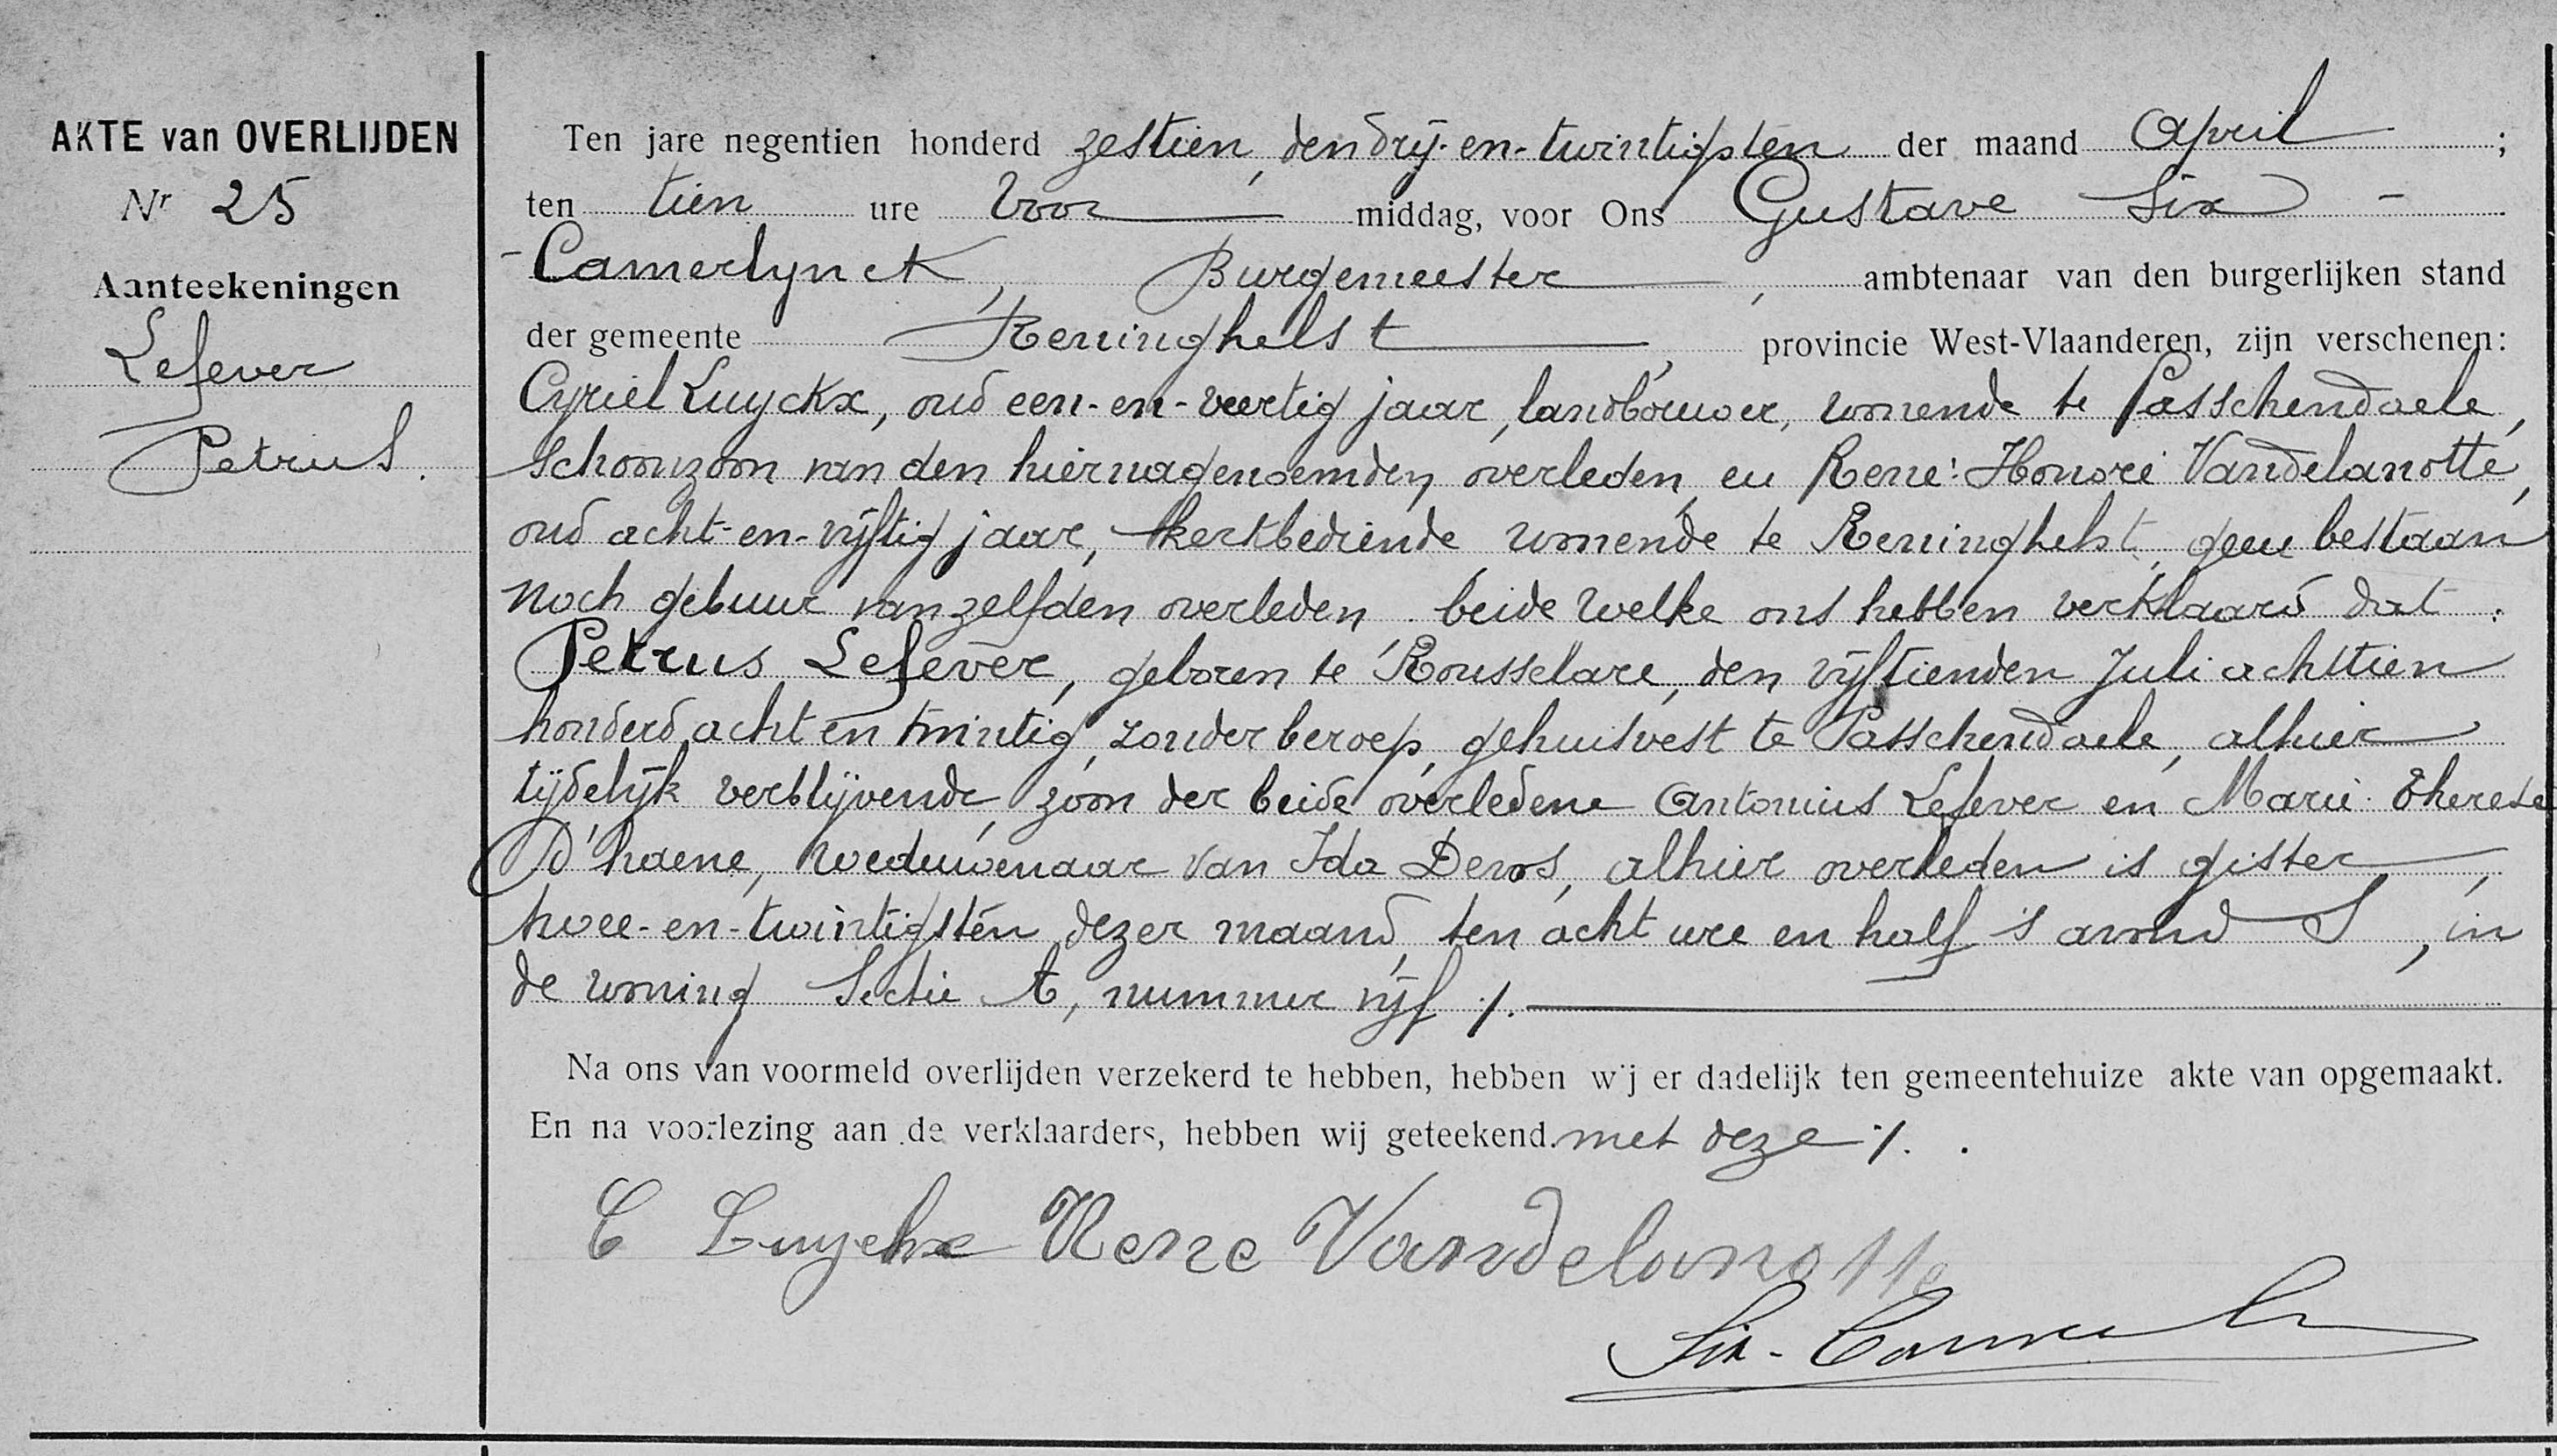 AKTE van OVERLIJDEN
Nr 25
Aanteekeningen
Lefever
Petrus.
Ten jare negentien honderd zestien, den drij-en-twintigsten der maand April ;
ten tien ure voor middag, voor Ons Gustave Six -
- Camerlynck, Burgemeester, ambtenaar van den burgerlijken stand
der gemeente Reninghelst, provincie West-Vlaanderen, zijn verschenen:
Cyriel Luyckx, oud een-en-veertig jaar, landbouwer, wonende te Passchendaele,
schoonzoon van den hiernagenoemden overleden, en René-Honoré Vandelanotte,
oud acht-en-vijftig jaar, kerkbediende, wonende te Reninghelst, geen bestaan
noch gebuur van zelfden overleden beide welke ons hebben verklaard dat :
Petrus Lefever, geboren te Rousselare, den vijftienden Juli achttien
honderd acht en twintig, zonder beroep, gehuisvest te Passchendaele, alhier
tijdelijk verblijvende, zoon der beide overledene Antonius Lefever en Marie-Therese
D'haene, weduwenaar van Ida Devos, alhier overleden is gister,
twee-en-twintigsten dezer maand, ten acht ure en half 's avond s, in
de woning Sectie A, nummer vijf ./.
Na ons van voormeld overlijden verzekerd te hebben, hebben wij er dadelijk ten gemeentehuize akte van opgemaakt.
En na voorlezing aan de verklaarders, hebben wij geteekend. met deze ./.
C Luyckx Rene Vandelanotte
Six-